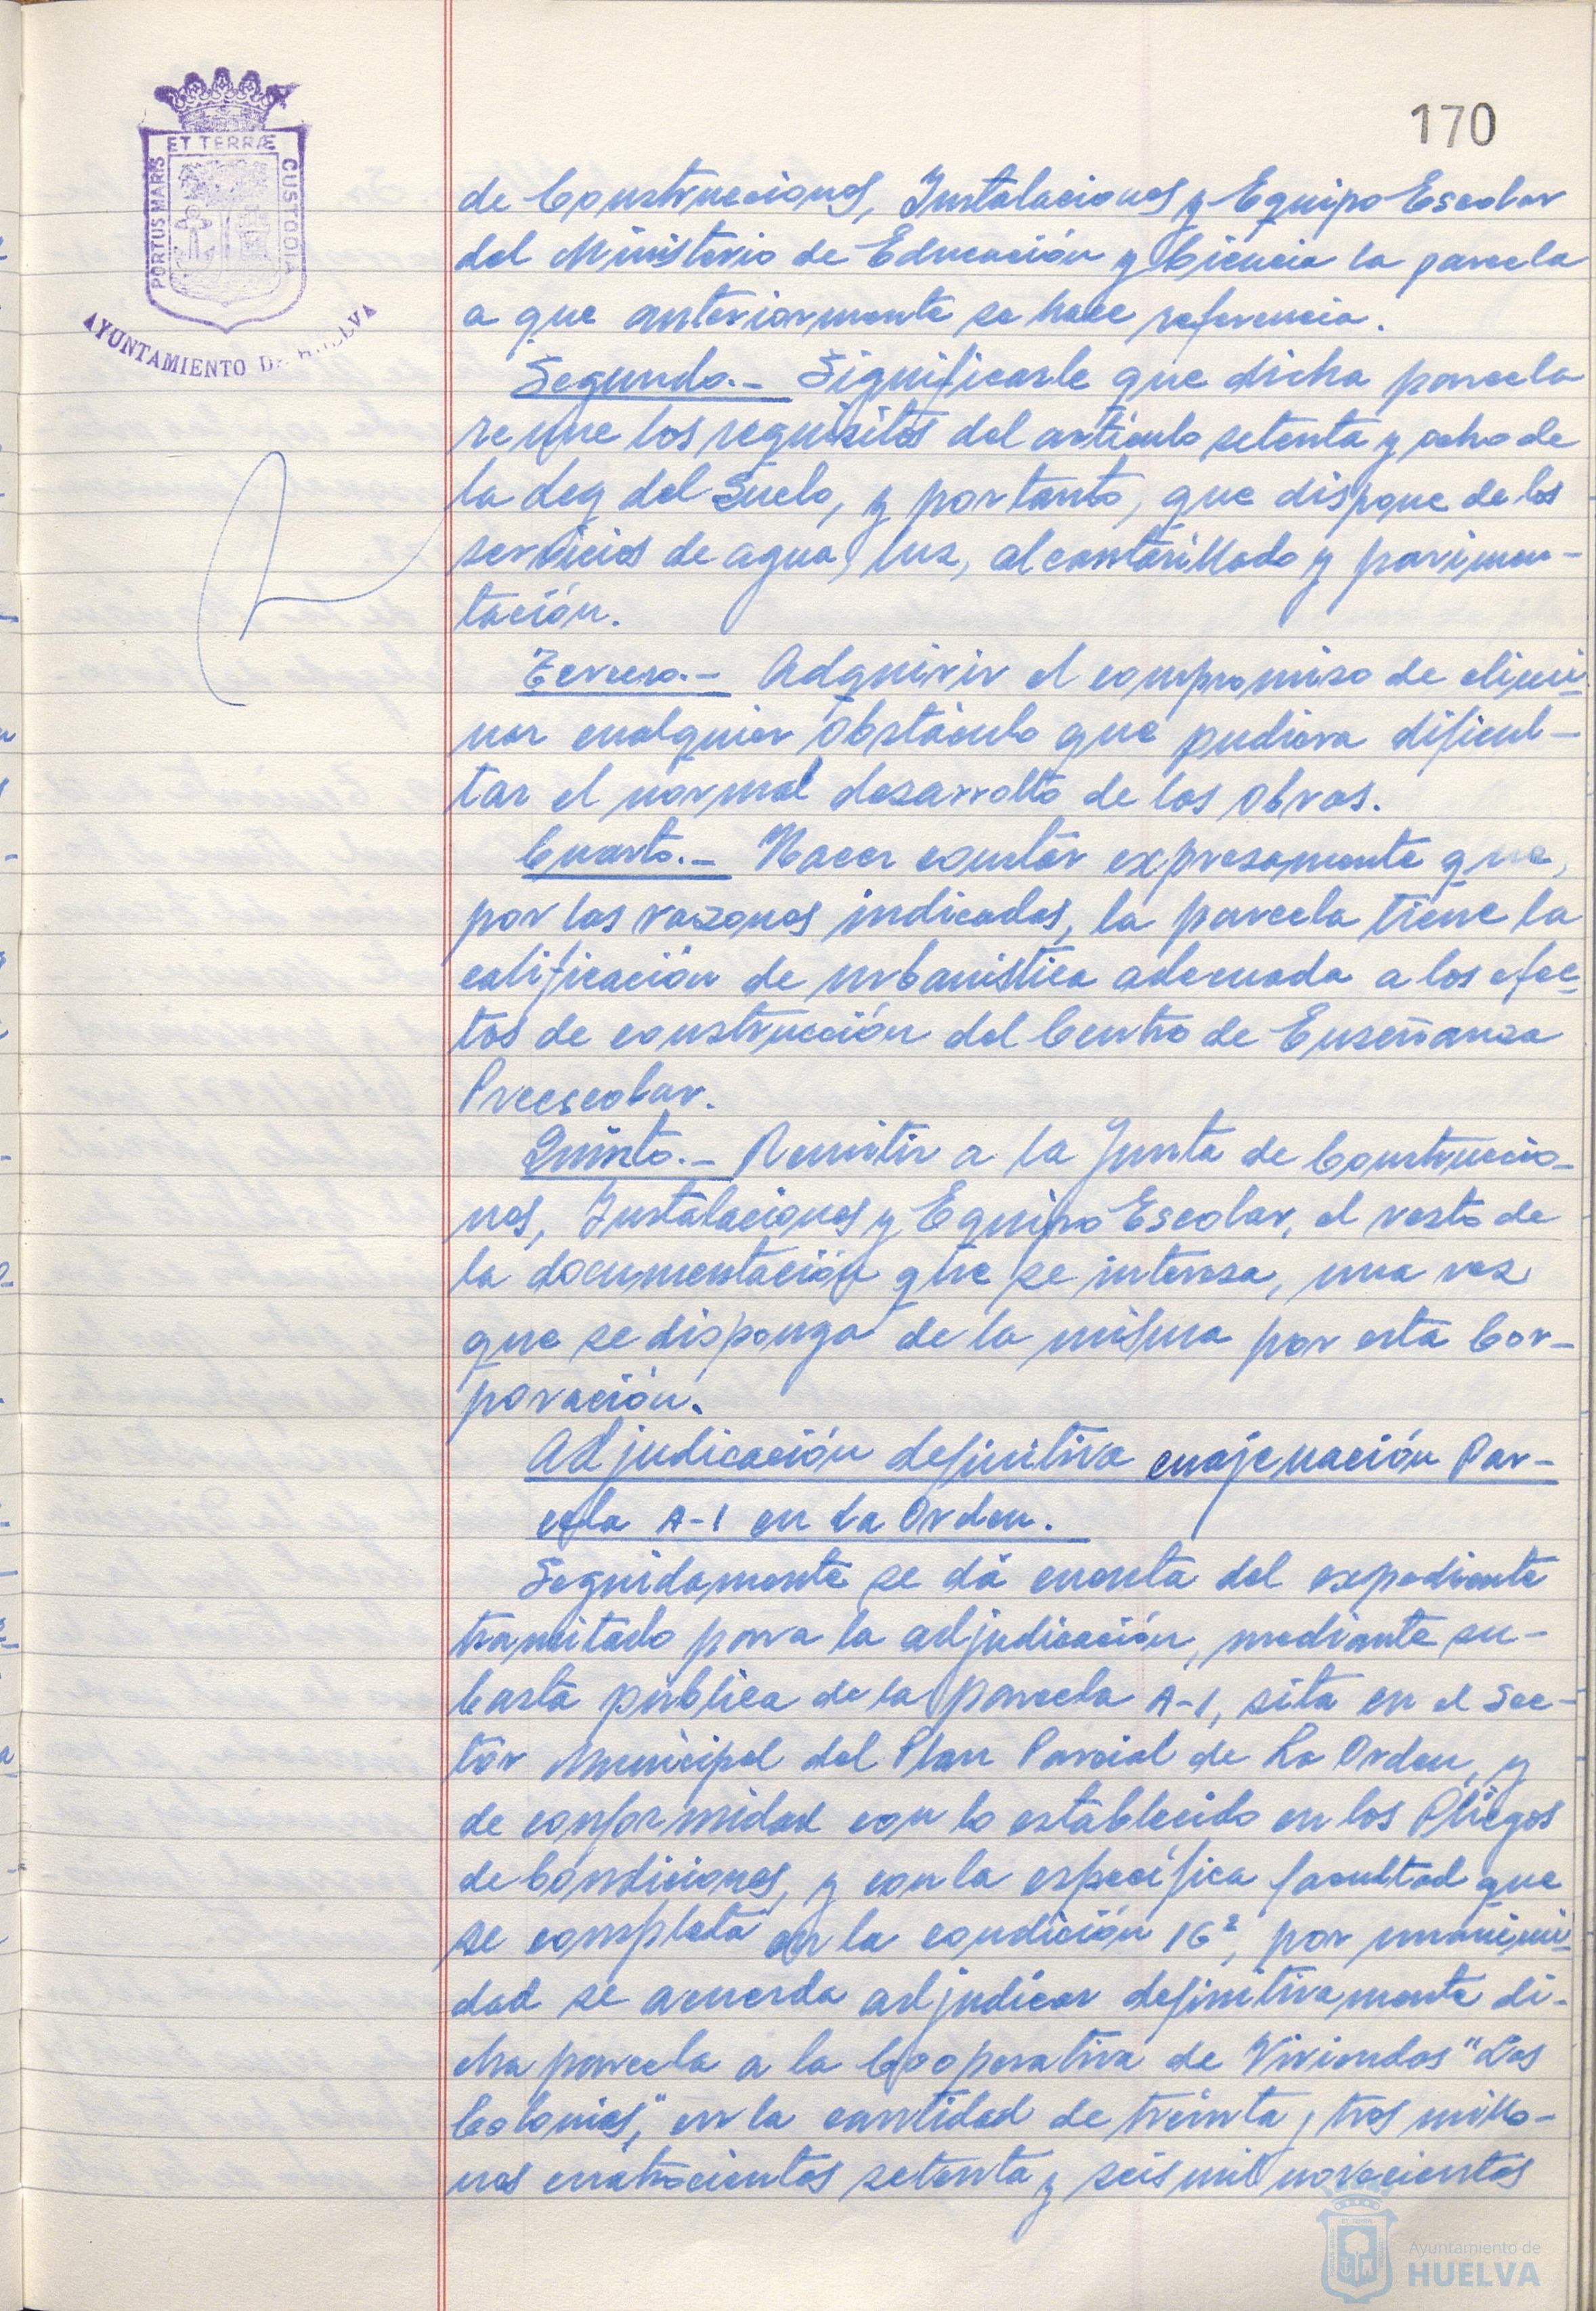 170
ET TERRÆ
PORTUS MARIS
CUSTODIA
AYUNTAMIENTO DE HUELVA
de Construcciones, Instalaciones y Equipo Escolar
del Ministerio de Educación y Ciencia la parcela
a que anteriormente se hace referencia.
Segundo.- Significarle que dicha parcela
reune los requisitos del artículo setenta y ocho de
la Ley del Suelo, y por tanto, que dispone de los
servicios de agua, luz, alcantarillado y pavimen-
tación.
Tercero.- Adquirir el compromiso de elimi-
nar cualquier obstáculo que pudiera dificul-
tar el normal desarrollo de las obras.
Cuarto.- Hacer constar expresamente que,
por las razones indicadas, la parcela tiene la
calificación de urbanística adecuada a los efec-
tos de construcción del Centro de Enseñanza
Preescolar.
Quinto.- Remitir a la Junta de Construccio-
nes, Instalaciones y Equipo Escolar, el resto de
la documentación que se interesa, una vez
que se disponga de la misma por esta Cor-
poración.
Adjudicación definitiva enajenación Par-
cela A-1 en La Orden.
Seguidamente se dá cuenta del expediente
tramitado para la adjudicación, mediante su-
basta pública de la parcela A-1, sita en el Sec-
tor Municipal del Plan Parcial de La Orden, y
de conformidad con lo establecido en los Pliegos
de Condiciones, y con la específica facultad que
se completa en la condición 16ª, por unanimi-
dad se acuerda adjudicar definitivamente di-
cha parcela a la Cooperativa de Viviendas "Las
Colonias", en la cantidad de treinta y tres millo-
nes cuatrocientas setenta y seis mil novecientas
Ayuntamiento de
HUELVA